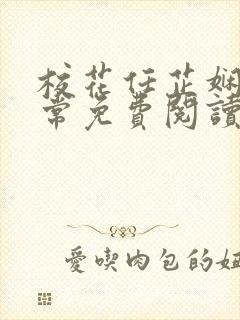 校花任芷娴
常免費閱讀
愛喫肉包的妞